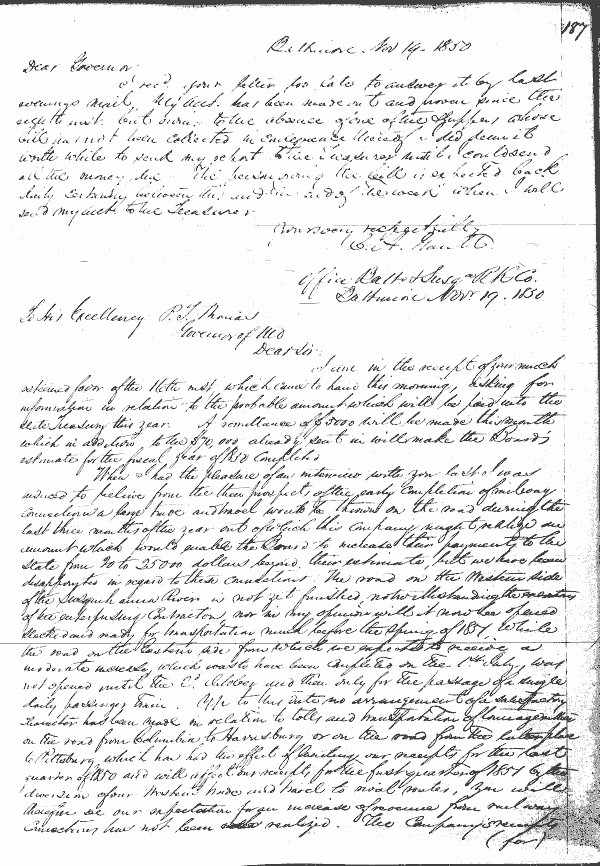 187
Baltimore Nov 19. 1850
Dear Governor.
I rec'd your letter too late to answer it by last
evenings mail, My acct. has been made out and proven since the
eighth inst. but owing to the absence of one of the Shippers whose
bill has not been collected in consequence thereof I did deem it
worth while to send my report to the Treasurer until I could send
all the money due. The person owing the bill is expected back
daily certainly between this and the end of the week when I will
send my acct to the Treasurer
Yours very respectfully
Office Balto & Susqa R R Co.
Baltimore Novr 19. 1850
To His Excellency P. F. Thomas
Governor of Md
Dear Sir.
I am in the receipt of your much
esteemed favor of the 16th inst, which came to hand this morning, asking for
information in relation to the probable amount which will be paid into the
State treasury this year. A remittance of $5000 will be made this month
which in addition to the $70,000 already sent in will make the Board's
estimate for the fiscal year of 1850 completed
When I had the pleasure of an interview with you last I was
induced to believe from the then prospect of the early completion of
connections a large trade and travel would be thrown on the road during the
last three months of the year out of which this Company might realize an
amount which would enable the Board to increase their payments to the
State from 20 to 25000 dollars beyond their estimate, but we have been
disappointed in regard to these connections. The road on the Western side
of the Susquehanna River is not yet finished, notwithstanding the
of the enterprising Contractor, nor in my opinion will it now be opened
and made ready for transportation much before the Spring of 1851. While
the road on the Eastern side from which we expected to receive a
moderate increase, which was to have been completed on the 1st July was
not opened until the and then only for the passage of a single
daily passenger train. Up to this date no arrangement of a satisfactory
character has been made in relation to tolls and transportation of
on the road from Columbia to Harrisburg or on the road from the latter place
to Pittsburg, which has had the effect of our receipts for the last
quarter of 1850 and will affect our receipts for the first quarter of 1851 by the
diversion of our Western trade and travel to rival routes, You will
therefore see our expectation for an increase of revenue from
connections has not been realized. The Company's receipts
(for)